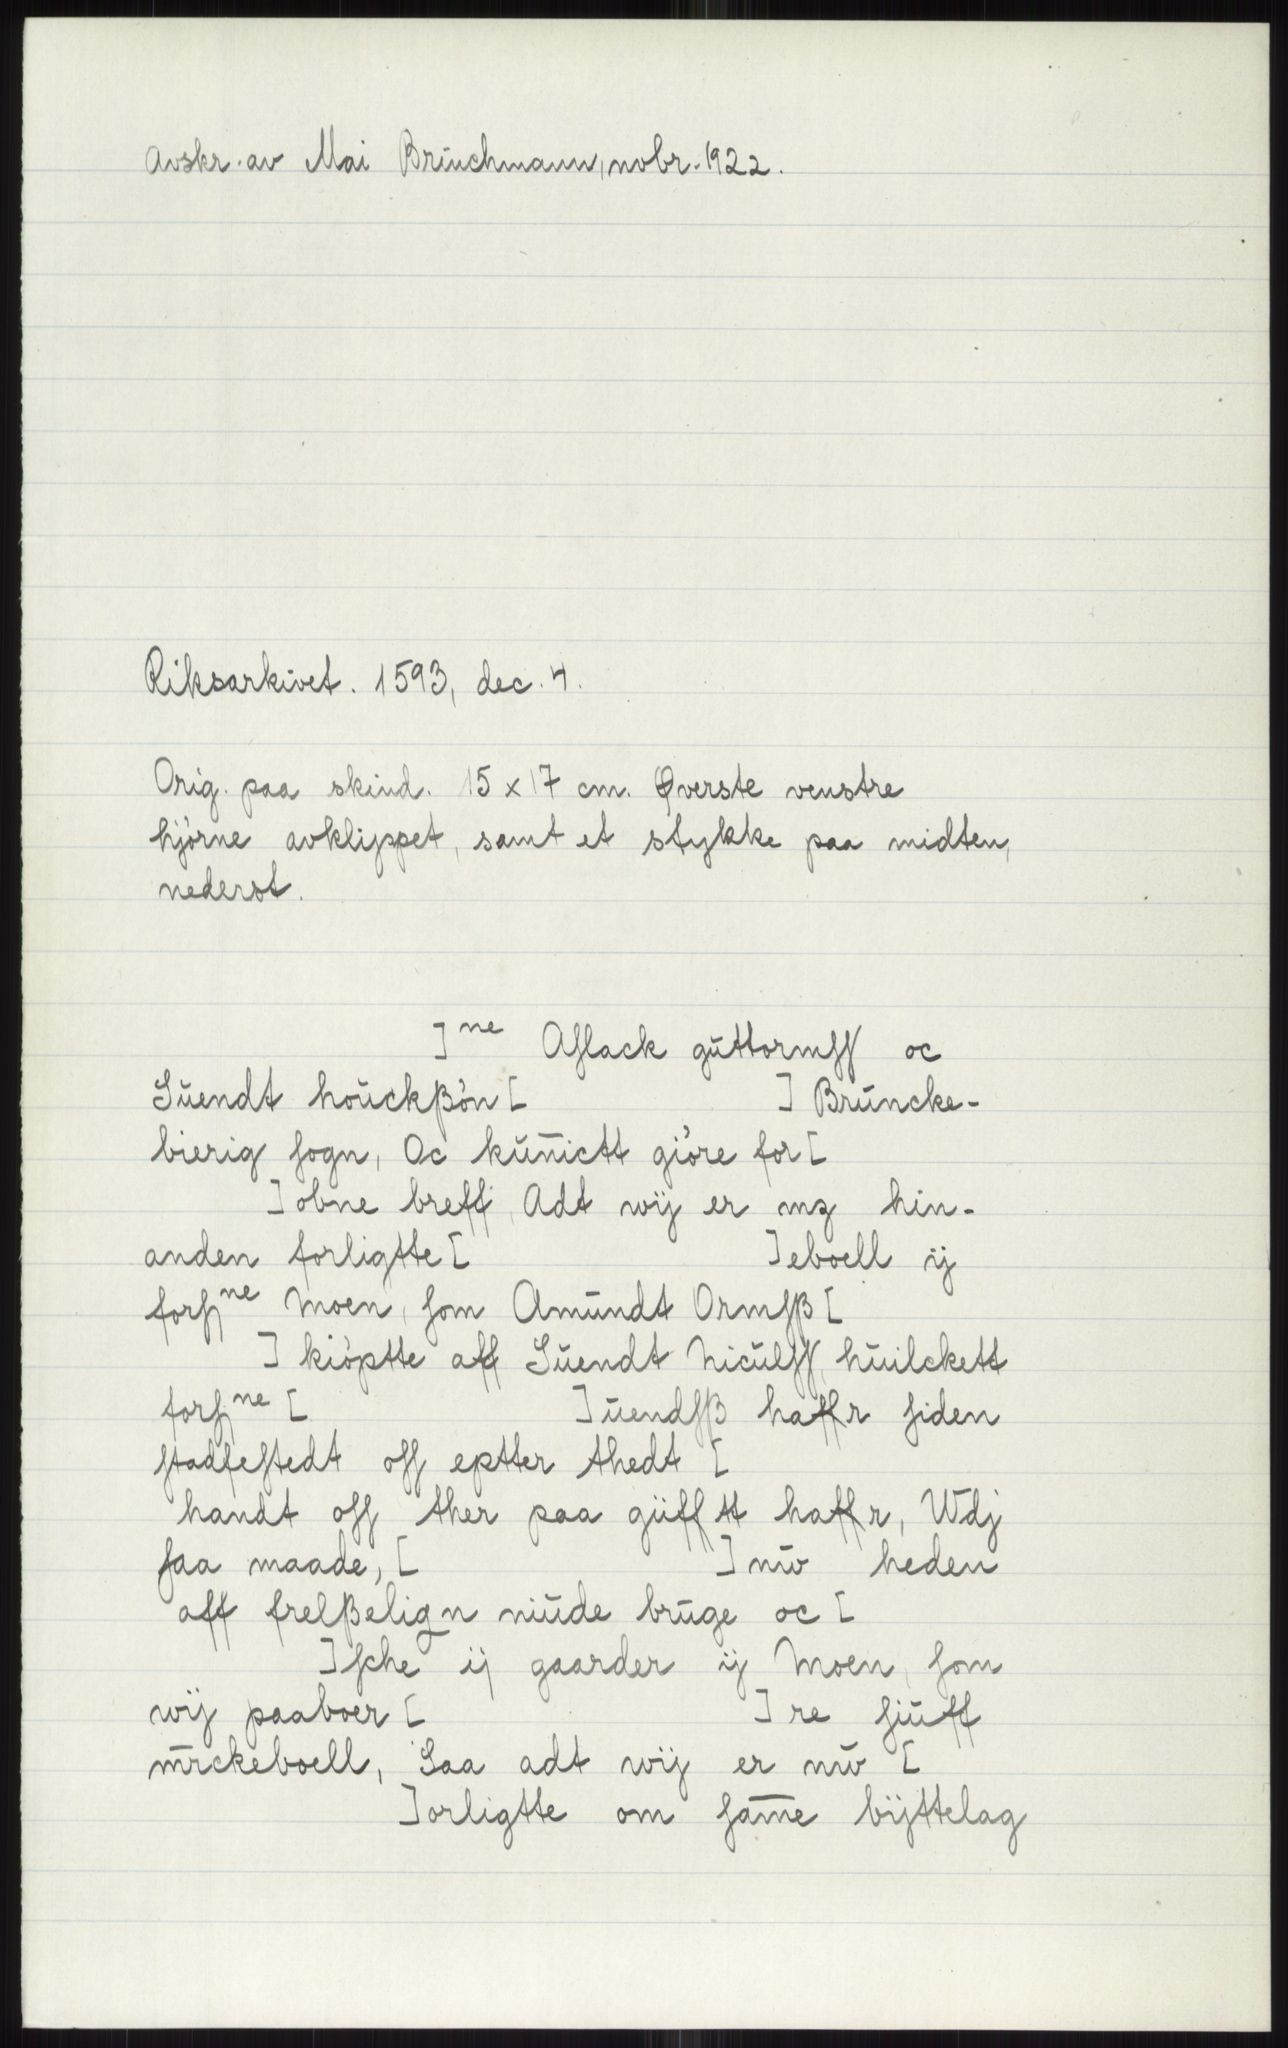 Avskr. av Mai Brüchmann, novbr. 1922.
Riksarkivet. 1593, dec. 4.
Orig. paa skind. 15 x 17 cm. Øverste venstre
hjörne avklippet, samt et stykke paa midten,
nederst.
]ne Aſlack gŭttormſſ oc
Sŭendt hoŭckβön [ ] Brŭncke-
bierig ſogn, Oc kŭn̄ictt giöre for [
] obne breff, Adt wij er mz hin-
anden forligtte [ ]eboell ij
forſne Moen, ſom Amŭndt Ormſβ [
] kiöptte aff Sŭendt Nicŭlſſ, hŭilckett
forſne [ ]ŭendſβ haffr ſiden
ſtadfeſtedt oſſ eptter thedt [
handt oſſ ther paa gŭfftt haffr, Wdj
ſaa maade, [ ] nŭ heden
aff frelβelign niŭde brŭge oc [
]ſche ij gaarder ij Moen, ſom
wij paaboer [ ]re ſiŭff
m̄rckeboell, Saa adt wij er nŭ [
]orligtte om ſam̄e bijttelag